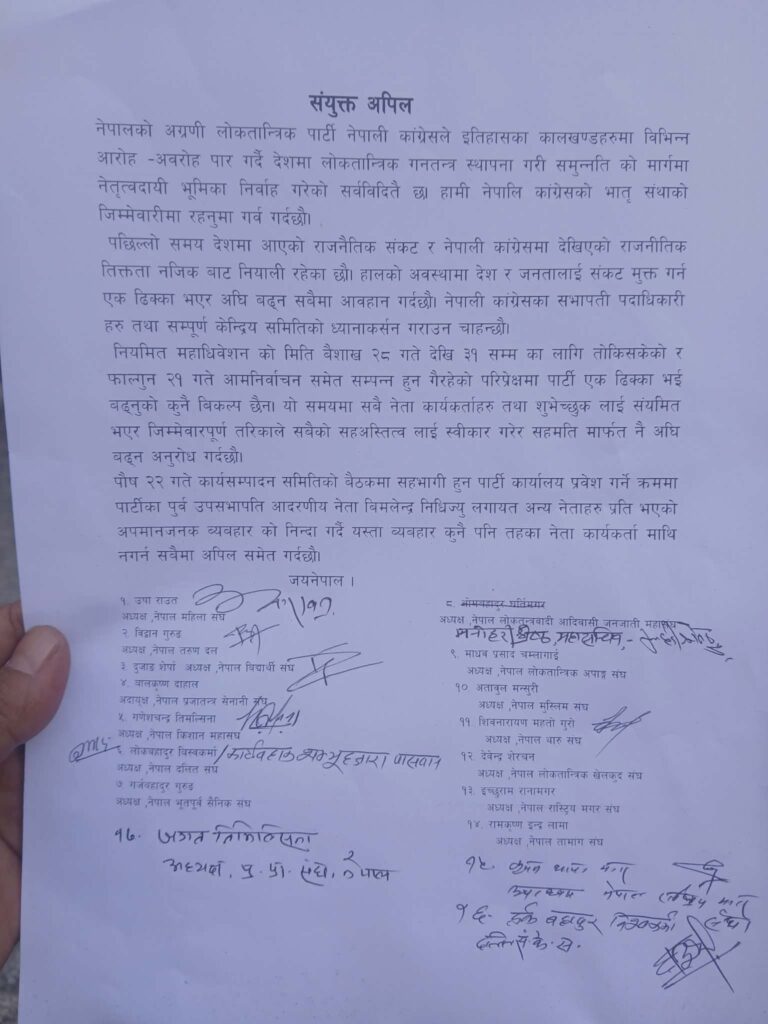 संयुक्त अपिल
नेपालको अग्रणी लोकतान्त्रिक पार्टी नेपाली कांग्रेसले इतिहासका कालखण्डहरुमा विभिन्न
आरोह -अवरोह पार गर्दै देशमा लोकतान्त्रिक गनतन्त्र स्थापना गरी समुन्नति को मार्गमा
नेतृत्वदायी भूमिका निर्वाह गरेको सर्वविदितै छ। हामी नेपालि कांग्रेसको भातृ संथाको
जिम्मेवारीमा रहनुमा गर्व गर्दछौ।
पछिल्लो समय देशमा आएको राजनैतिक संकट र नेपाली कांग्रेसमा देखिएको राजनीतिक
तिक्तता नजिक बाट नियाली रहेका छौ। हालको अवस्थामा देश र जनतालाई संकट मुक्त गर्न
एक ढिक्का भएर अघि बढ्न सबैमा आवहान गर्दछौ। नेपाली कांग्रेसका सभापती पदाधिकारी
हरु तथा सम्पूर्ण केन्द्रिय समितिको ध्यानाकर्सन गराउन चाहन्छौ।
नियमित महाधिवेशन को मिति बैशाख २८ गते देखि ३१ सम्म का लागि तोकिसकेको र
फाल्गुन २१ गते आमनिर्वाचन समेत सम्पन्न हुन गैरहेको परिप्रेक्षमा पार्टी एक ढिक्का भई
बढ्नुको कुनै बिकल्प छैन। यो समयमा सबै नेता कार्यकर्ताहरु तथा शुभेच्छुक लाई संयमित
भएर जिम्मेवारपूर्ण तरिकाले सबैको सहअस्तित्व लाई स्वीकार गरेर सहमति मार्फत नै अघि
बढ्न अनुरोध गर्दछौ।
पौष २२ गते कार्यसम्पादन समितिको बैठकमा सहभागी हुन पार्टी कार्यालय प्रवेश गर्ने क्रममा
पार्टीका पुर्व उपसभापति आदरणीय नेता बिमलेन्द्र निधिज्यु लगायत अन्य नेताहरु प्रति भएको
अपमानजनक ब्यवहार को निन्दा गर्दै यस्ता ब्यवहार कुनै पनि तहका नेता कार्यकर्ता माथि
नगर्न सबैमा अपिल समेत गर्दछौ।
जयनेपाल ।
१. उपा राउत
अध्यक्ष ,नेपाल महिला संघ
२ विद्वान गुरुड
अध्यक्ष ,नेपाल तरुण दल
३ दुजाड शेर्पा अध्यक्ष ,नेपाल विद्यार्थी संघ
४ बालकृष्ण दाहाल
अदायृक्ष ,नेपाल प्रजातन्त्र सेनानी संघ
५ गणेशचन्द्र तिमल्सिना
अध्यक्ष ,नेपाल किशान महासंघ
लोकबहादुर विस्वकर्मा / कार्यवाहक
अध्यक्ष ,नेपाल दलित संघ
७ गर्जबहादुर गुरुड
अध्यक्ष ,नेपाल भूतपूर्व सैनिक संघ
१७. जगत तिमिल्सिना
अध्यक्ष, प्र. प्रे. संघ, नेपाल
८ ओमबहादुर घर्तिमगर
अध्यक्ष ,नेपाल लोकतन्त्रवादी आदिवासी जनजाती महासंघ
मनोहर श्रेष्ठ, महासचिव,
९. माधब प्रसाद चम्लागाई
अध्यक्ष ,नेपाल लोकतान्त्रिक अपाङ्ग संघ
१० अताबुल मन्सुरी
अध्यक्ष ,नेपाल मुस्लिम संघ
११ शिवनारायण महतो गुरी
अध्यक्ष ,नेपाल थारु संघ
१२ देवेन्द्र शेरचन
अध्यक्ष ,नेपाल लोकतान्त्रिक खेलकुद संघ
१३. इच्छुराम रानामगर
अध्यक्ष ,नेपाल रास्ट्रिय मगर संघ
१४. रामकृष्ण इन्द्र लामा
अध्यक्ष ,नेपाल तामाग संघ
१५. थापा मगर
नेपाल
१६. बहादुर